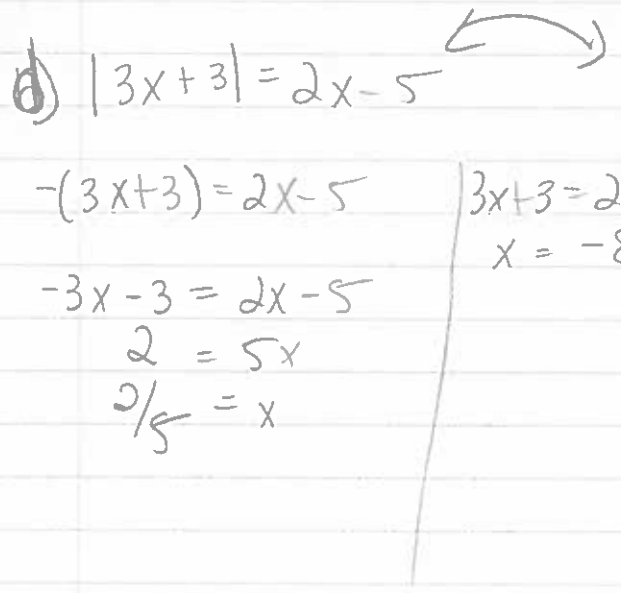 d) |3x+3| = 2x-5
-(3x+3) = 2x-5
-3x-3 = 2x-5
2 = 5x
2/5 = x
3x+3=2
x = -8